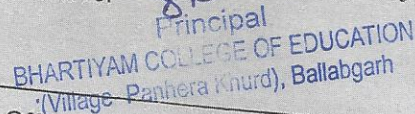 Principal
BHARTIYAM COLLEGE OF EDUCATION
(Village Panhera Khurd), Ballabgarh